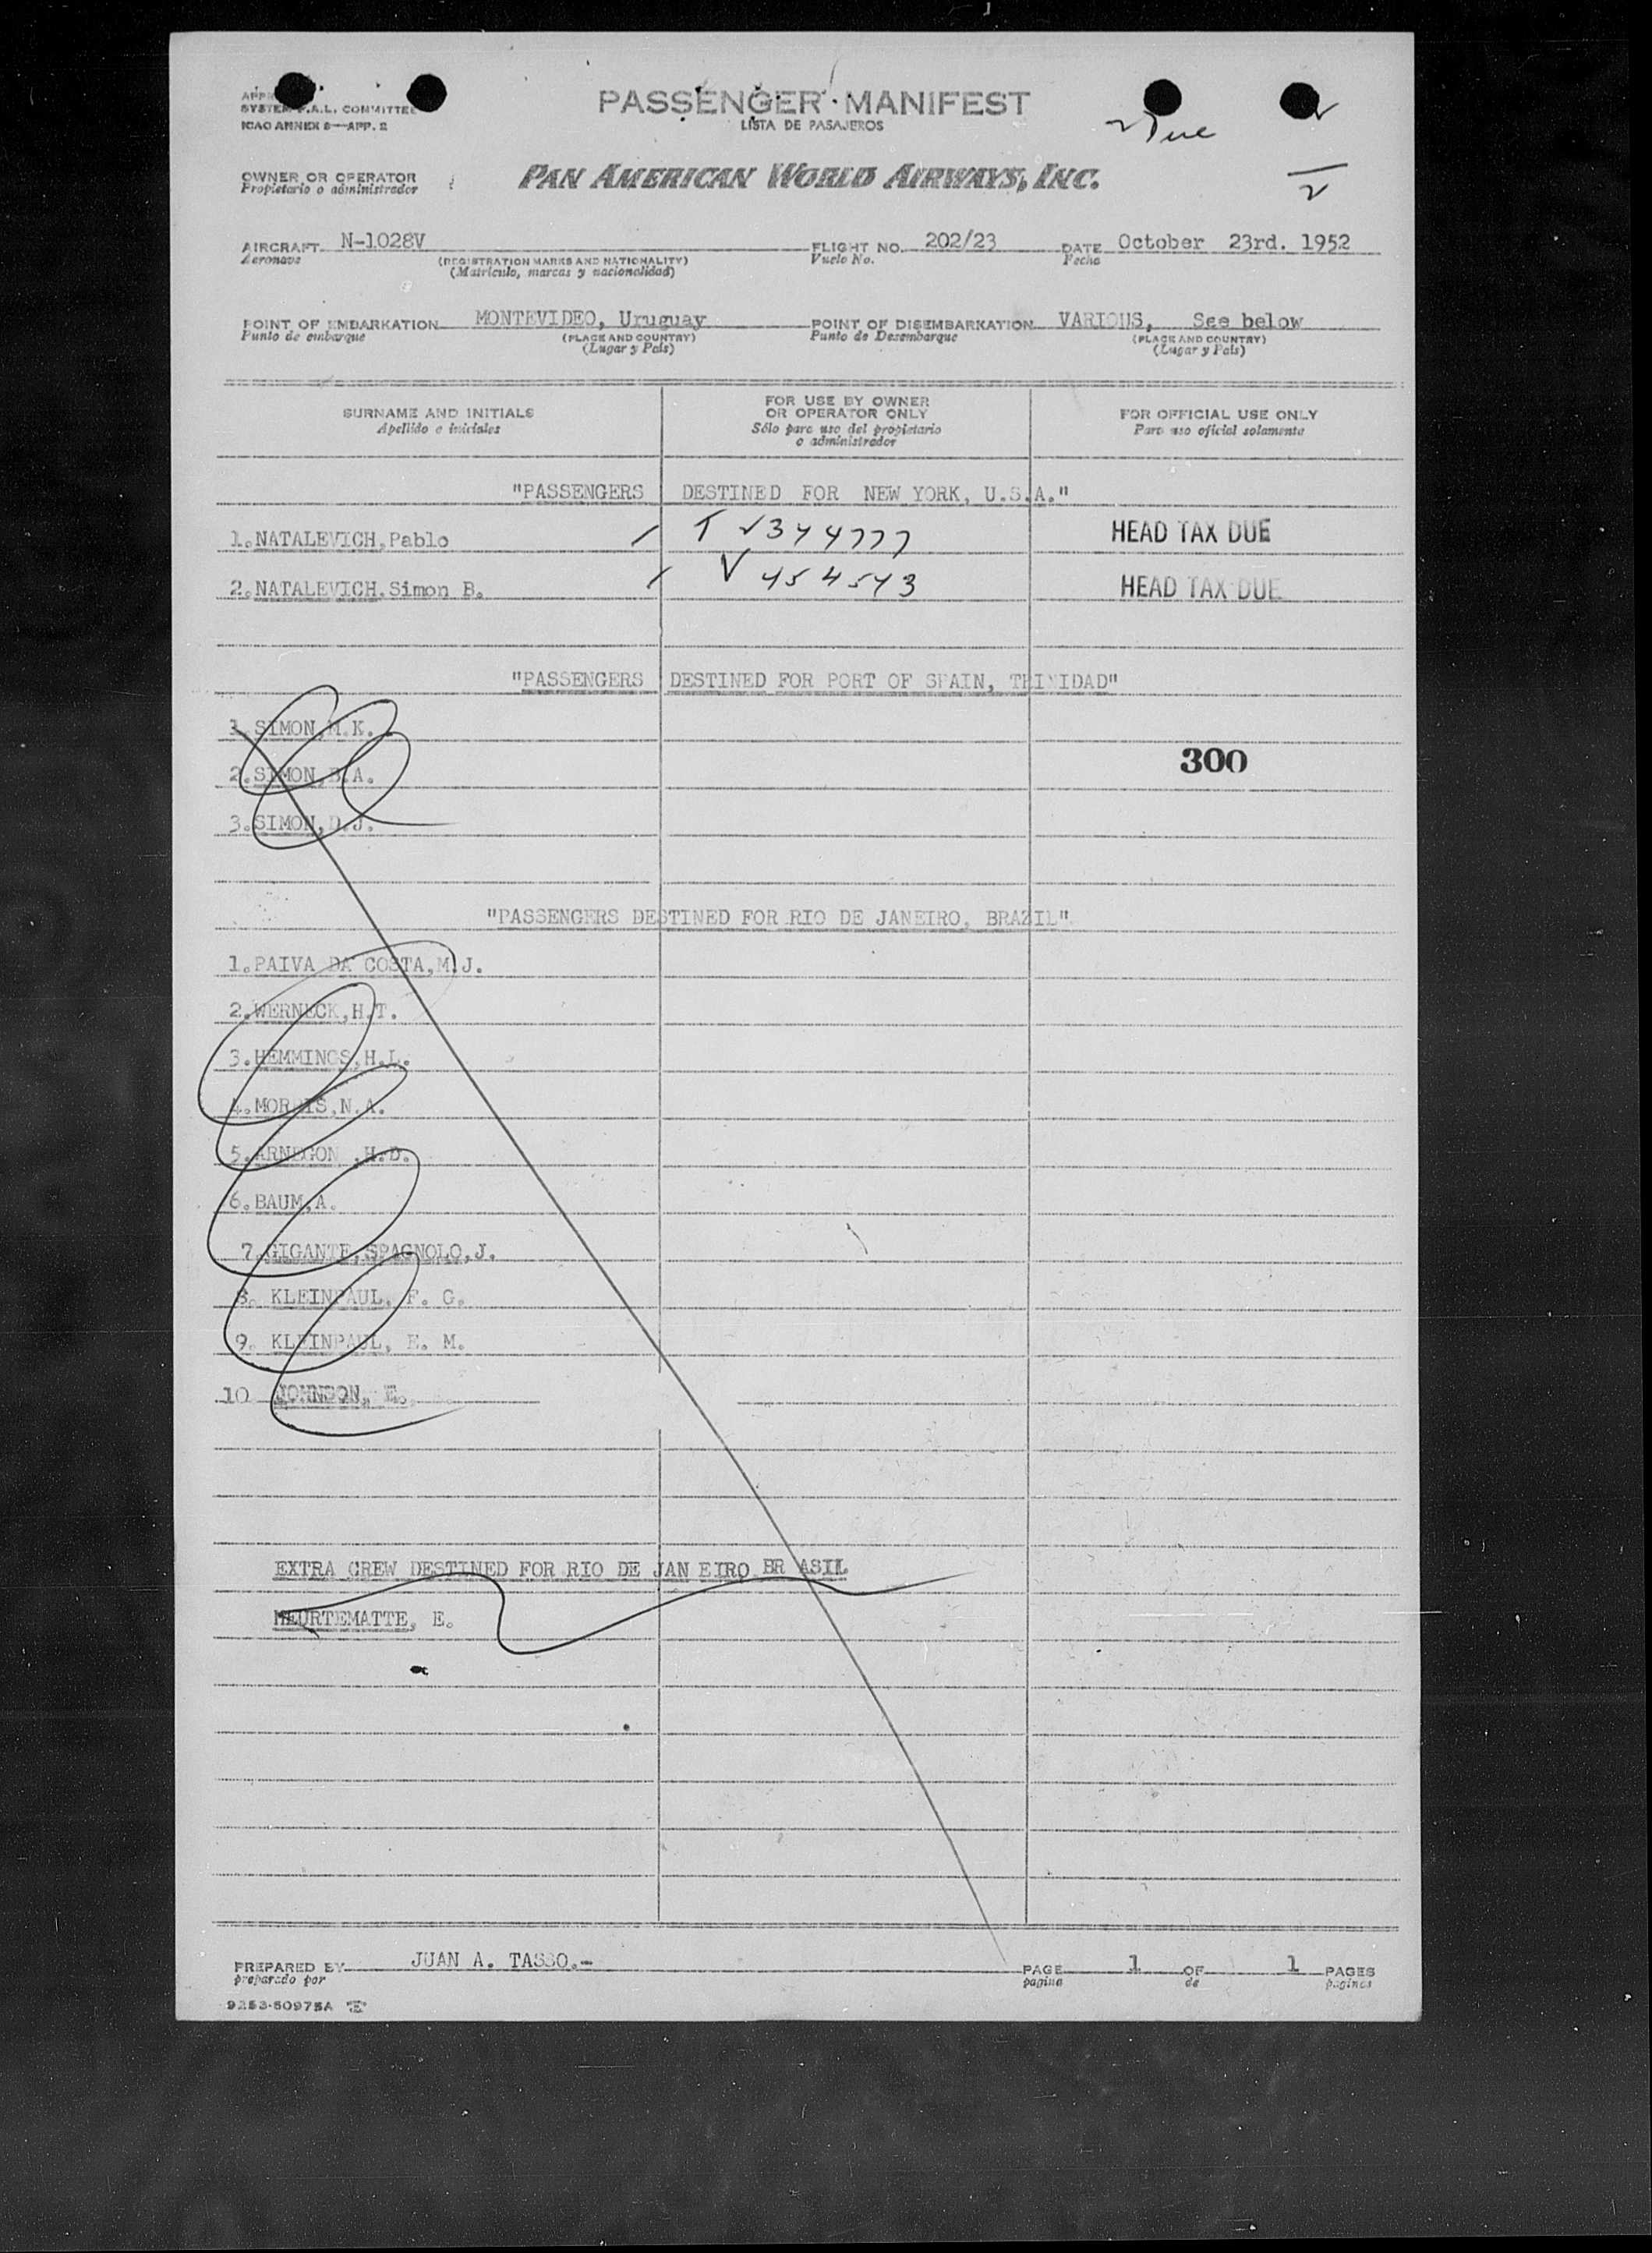 SYSTEM F.A.L. COMMITTEE
ICAO ANNEX 9—APP. 2
PASSENGER MANIFEST
LISTA DE PASAJEROS
2 Due
OWNER OR OPERATOR
Propietario o administrador
PAN AMERICAN WORLD AIRWAYS, INC.
AIRCRAFT N-1028V FLIGHT NO. 202/23 DATE October 23rd. 1952
Aeronave (REGISTRATION MARKS AND NATIONALITY) Vuelo No. Fecha
(Matrículo, marcas y nacionalidad)
POINT OF EMBARKATION MONTEVIDEO, Uruguay POINT OF DISEMBARKATION VARIOUS, See below
Punto de embarque (PLACE AND COUNTRY) Punto de Desembarque (PLACE AND COUNTRY)
(Lugar y País) (Lugar y País)
SURNAME AND INITIALS FOR USE BY OWNER OR OPERATOR ONLY FOR OFFICIAL USE ONLY
Apellido e iniciales Sólo para uso del propietario o administrador Para uso oficial solamente
"PASSENGERS DESTINED FOR NEW YORK, U.S.A."
1.NATALEVICH,Pablo / T V344777 HEAD TAX DUE
2.NATALEVICH,Simon B. / V 454543 HEAD TAX DUE
"PASSENGERS DESTINED FOR PORT OF SPAIN, TRINIDAD"
1.SIMON,M.K.
300
2.SIMON,B.A.
3.SIMON,D.J.
"PASSENGERS DESTINED FOR RIO DE JANEIRO, BRAZIL"
1.PAIVA DA COSTA,M.J.
2.WERNECK,H.T.
3.HEMMINGS,H.L.
4.MORRIS,N.A.
5.ARNEGON ,H.D.
6.BAUM,A.
7.GIGANTE,SPAGNOLO,J.
8. KLEINPAUL, F. G.
9. KLEINPAUL, E. M.
10 JOHNSON, E.
EXTRA CREW DESTINED FOR RIO DE JAN EIRO BR ASIL
MEURTEMATTE, E.
PREPARED BY JUAN A. TASSO.- PAGE 1 OF 1 PAGES
preparado por pagina de paginas
9253-50975A